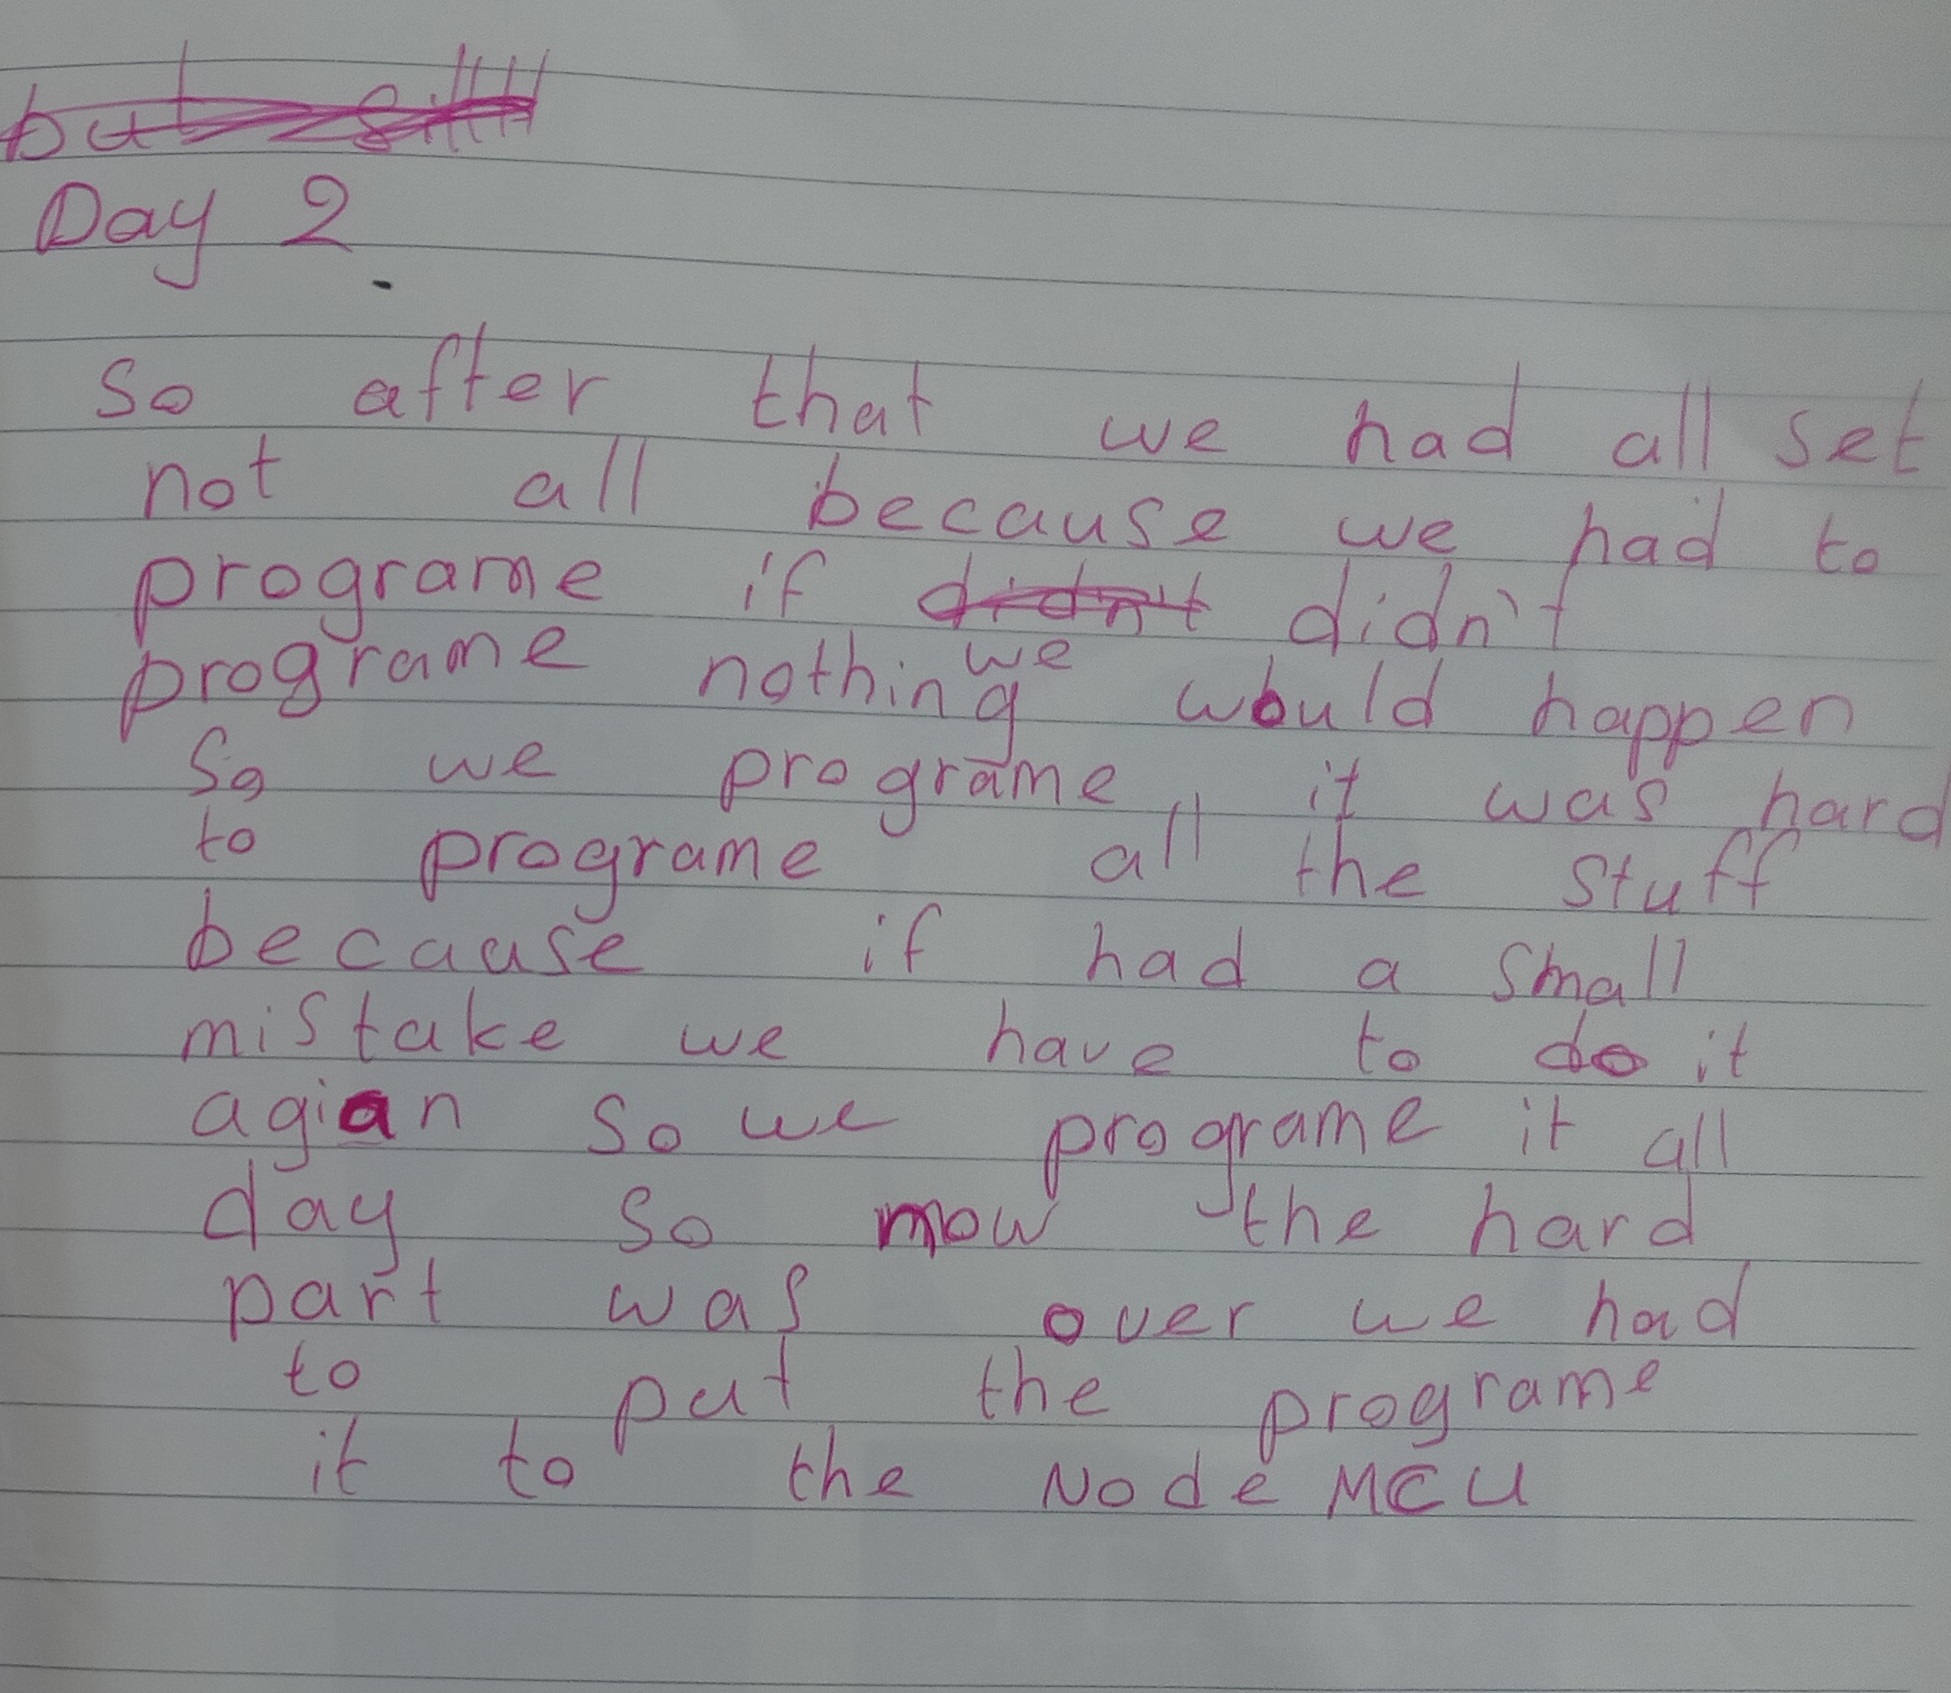 but still
Day 2
So after that we had all set
not all because we had to
programe if didn't didn't
we
programe nothing would happen
So we programe it was hard
to programe all the stuff
because if had a small
mistake we have to do it
agian so we programe it all
day so now the hard
part was over we had
to put the programe
it to the Node MCU